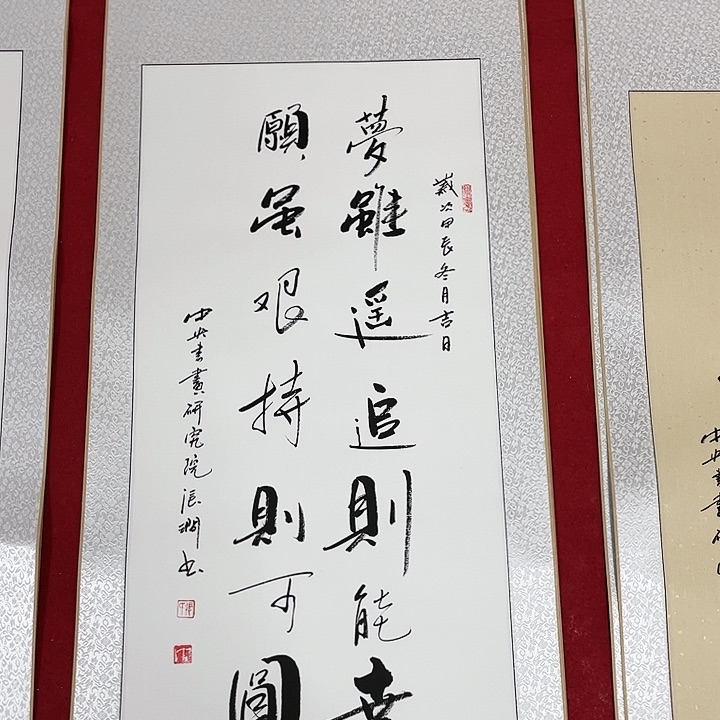 歲次甲辰冬月吉日
夢雖遥追則能
願虽艰持則可圓
中央書畫研究院张书
中央書畫研